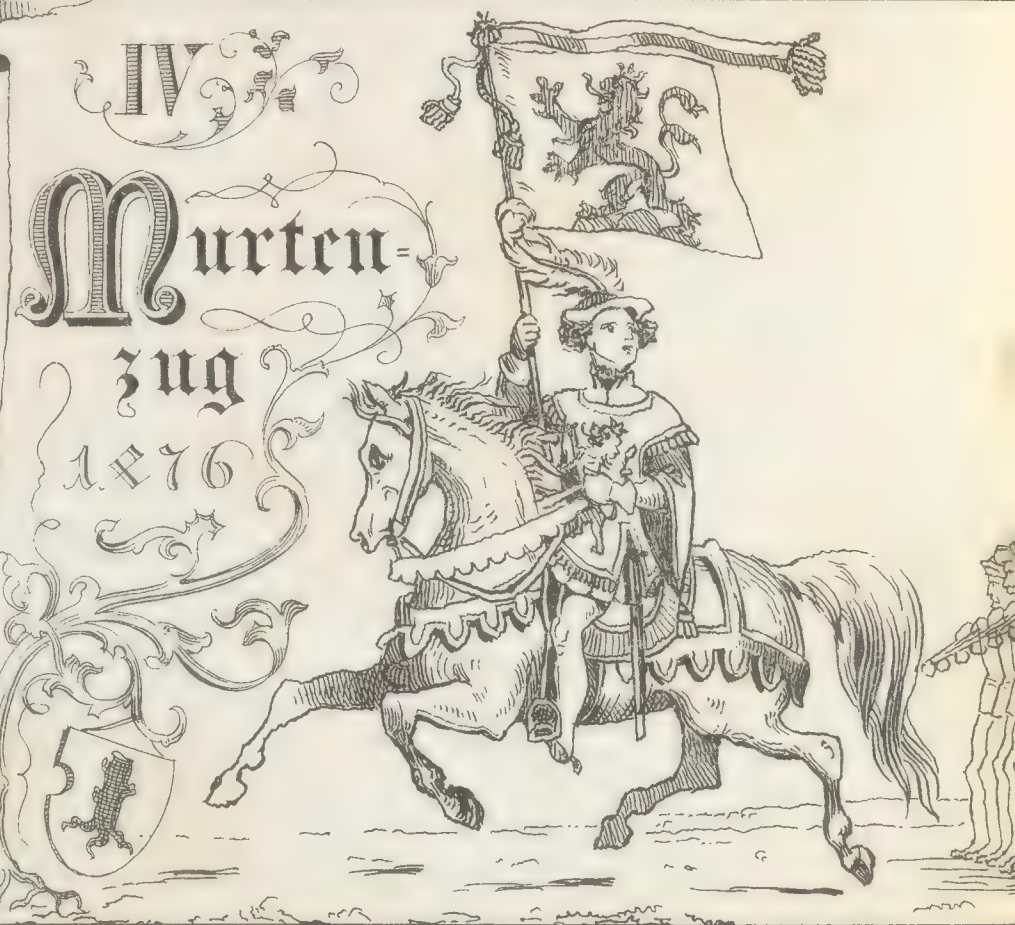 IV
Murten=
zug
1876